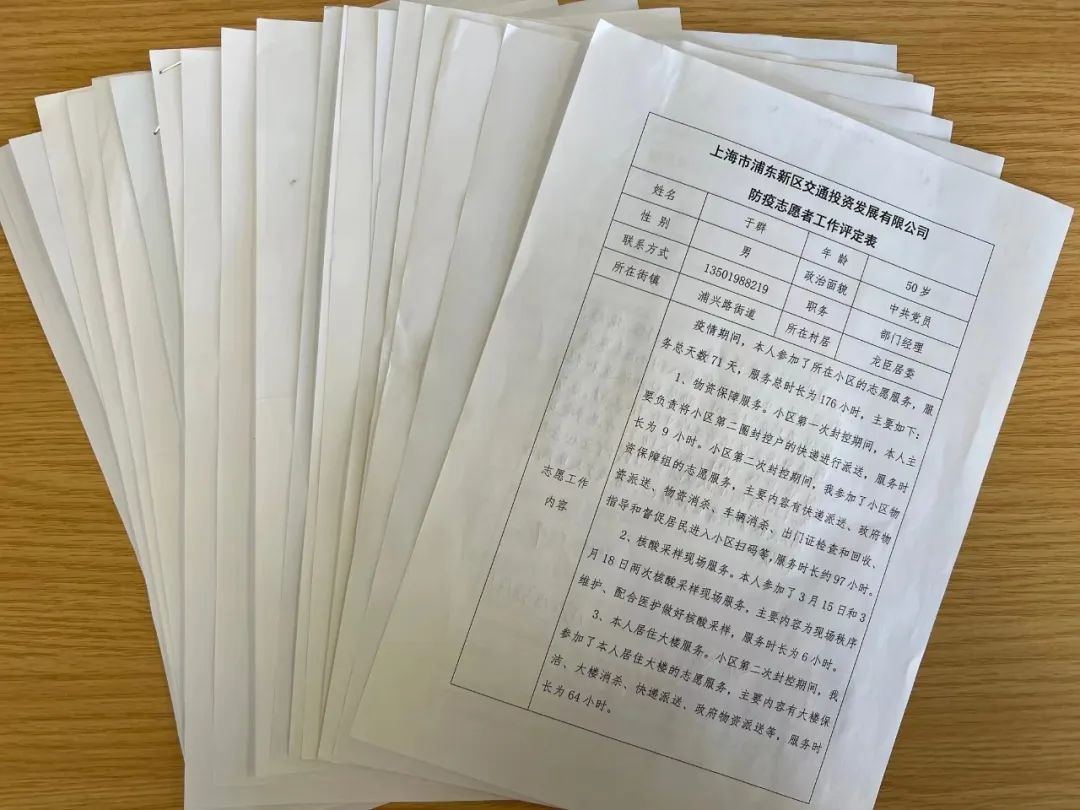 上海市浦东新区交通投资发展有限公司
防疫志愿者工作评定表
姓名 于群 年龄 50岁
性别 男 政治面貌 中共党员
联系方式 13501988219 职务 部门经理
所在街镇 浦兴路街道 所在村居 龙臣居委
志愿工作
内容
疫情期间，本人参加了所在小区的志愿服务，服
务总天数71天，服务总时长为176小时，主要如下：
1、物资保障服务。小区第一次封控期间，本人主
要负责将小区第二圈封控户的快递进行派送，服务时
长为9小时。小区第二次封控期间，我参加了小区物
资保障组的志愿服务，主要内容有快递派送、政府物
资派送、物资消杀、车辆消杀、出门证检查和回收、
指导和督促居民进入小区扫码等，服务时长约97小时。
2、核酸采样现场服务。本人参加了3月15日和3
月18日两次核酸采样现场服务，主要内容为现场秩序
维护、配合医护做好核酸采样，服务时长为6小时。
3、本人居住大楼服务。小区第二次封控期间，我
参加了本人居住大楼的志愿服务，主要内容有大楼保
洁、大楼消杀、快递派送、政府物资派送等，服务时
长为64小时。